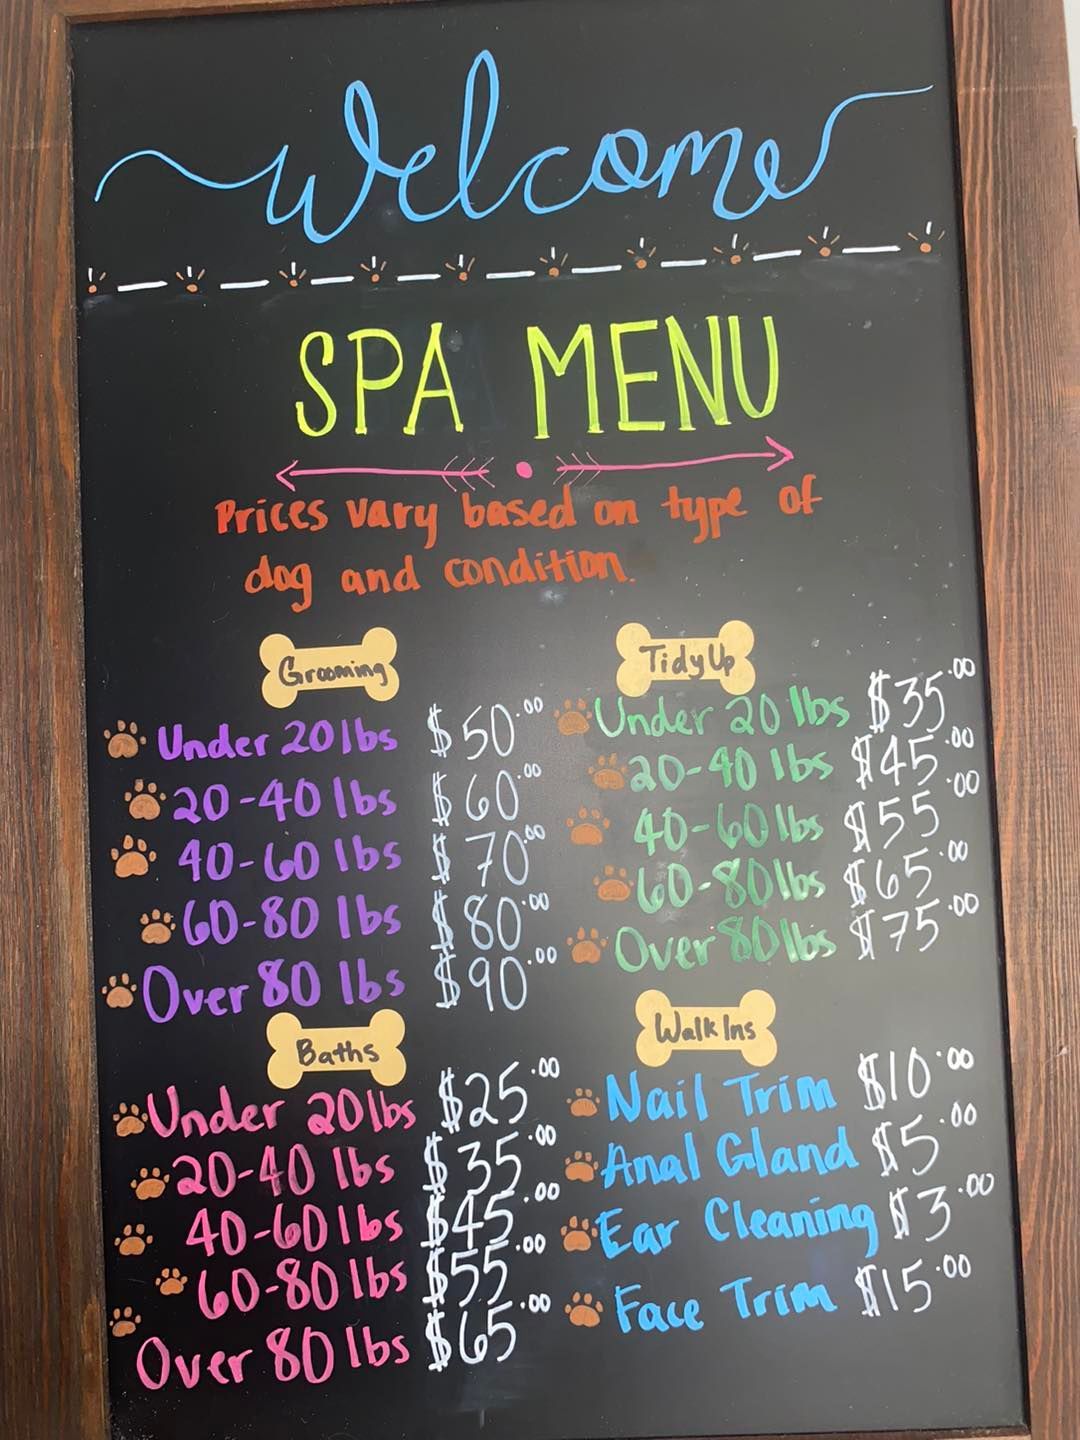 Welcome
SPA MENU
Prices vary based on type of
dog and condition.
Grooming
Under 20 lbs $50.00
20-40 lbs $60.00
40-60 lbs $70.00
60-80 lbs $80.00
Over 80 lbs $90.00
Tidy Up
Under 20 lbs $35.00
20-40 lbs $45.00
40-60 lbs $55.00
60-80 lbs $65.00
Over 80 lbs $75.00
Baths
Under 20 lbs $25.00
20-40 lbs $35.00
40-60 lbs $45.00
60-80 lbs $55.00
Over 80 lbs $65.00
Walk Ins
Nail Trim $10.00
Anal Gland $5.00
Ear Cleaning $3.00
Face Trim $15.00